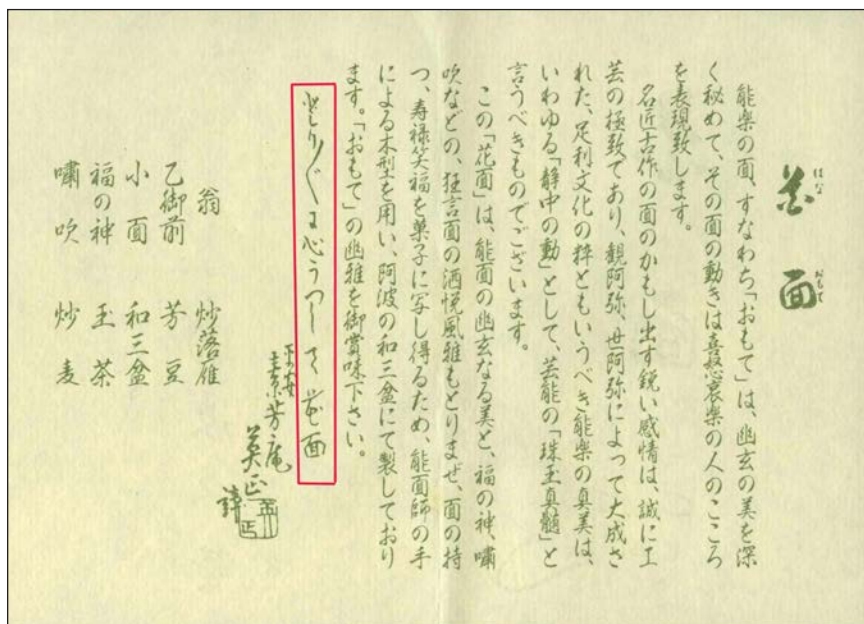 花面
はな おもて
能楽の面、すなわち「おもて」は、幽玄の美を深
く秘めて、その面の動きは喜怒哀楽の人のこころ
を表現致します。
名匠古作の面のかもし出す鋭い感情は、誠に工
芸の極致であり、観阿弥、世阿弥によって大成さ
れた、足利文化の粋ともいうべき能楽の真美は、
いわゆる「静中の動」として、芸能の「珠玉真髄」と
言うべきものでございます。
この「花面」は、能面の幽玄なる美と、福の神、嘯
吹などの、狂言面の洒悦風雅もとりまぜ、面の持
つ、寿禄笑福を菓子に写し得るため、能面師の手
による木型を用い、阿波の和三盆にて製しており
ます。「おもて」の幽雅を御賞味下さい。
とり〴〵に心うつして花面
芳庵
英正
翁 炒落雁
乙御前 芳豆
小面 和三盆
福の神 玉茶
嘯吹 炒麦